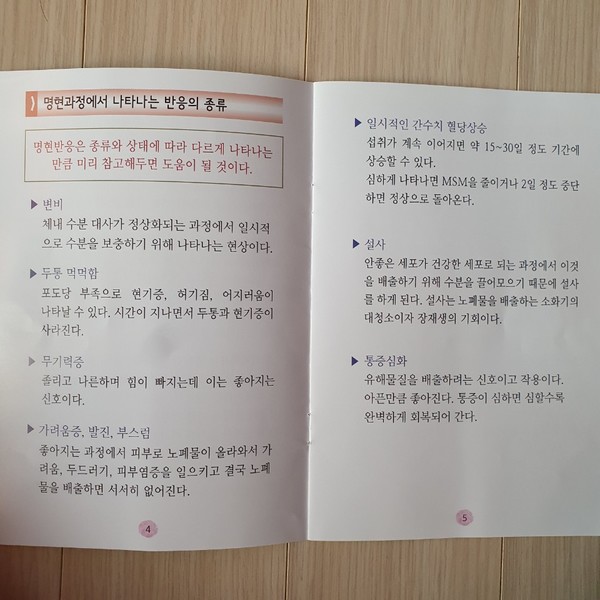 명현과정에서 나타나는 반응의 종류
명현반응은 종류와 상태에 따라 다르게 나타나는
만큼 미리 참고해두면 도움이 될 것이다.
▶ 변비
체내 수분 대사가 정상화되는 과정에서 일시적
으로 수분을 보충하기 위해 나타나는 현상이다.
▶ 두통 먹먹함
포도당 부족으로 현기증, 허기짐, 어지러움이
나타날 수 있다. 시간이 지나면서 두통과 현기증이
사라진다.
▶ 무기력증
졸리고 나른하며 힘이 빠지는데 이는 좋아지는
신호이다.
▶ 가려움증, 발진, 부스럼
좋아지는 과정에서 피부로 노폐물이 올라와서 가
려움, 두드러기, 피부염증을 일으키고 결국 노폐
물을 배출하면 서서히 없어진다.
4
▶ 일시적인 간수치 혈당상승
섭취가 계속 이어지면 약 15~30일 정도 기간에
상승할 수 있다.
심하게 나타나면 MSM을 줄이거나 2일 정도 중단
하면 정상으로 돌아온다.
▶ 설사
안좋은 세포가 건강한 세포로 되는 과정에서 이것
을 배출하기 위해 수분을 끌어모으기 때문에 설사
를 하게 된다. 설사는 노폐물을 배출하는 소화기의
대청소이자 장재생의 기회이다.
▶ 통증심화
유해물질을 배출하려는 신호이고 작용이다.
아픈만큼 좋아진다. 통증이 심하면 심할수록
완벽하게 회복되어 간다.
5